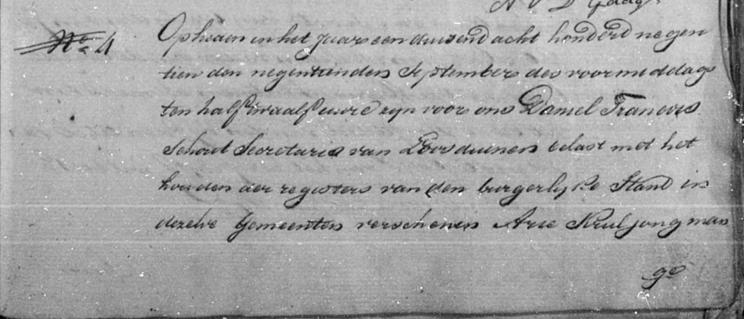 N V D Gaag
No 4 Op heden in het Jaar een duisend acht honderd negen
tien den negentienden September des voormiddags
ten half twaalf uure zyn voor ons Daniel Francois
Schout Secretaris van Loosduinen belast met het
houden der registers van den burgerlyke Stand in
dezelve Gemeenten verschenen Arie Krul jongman
ge